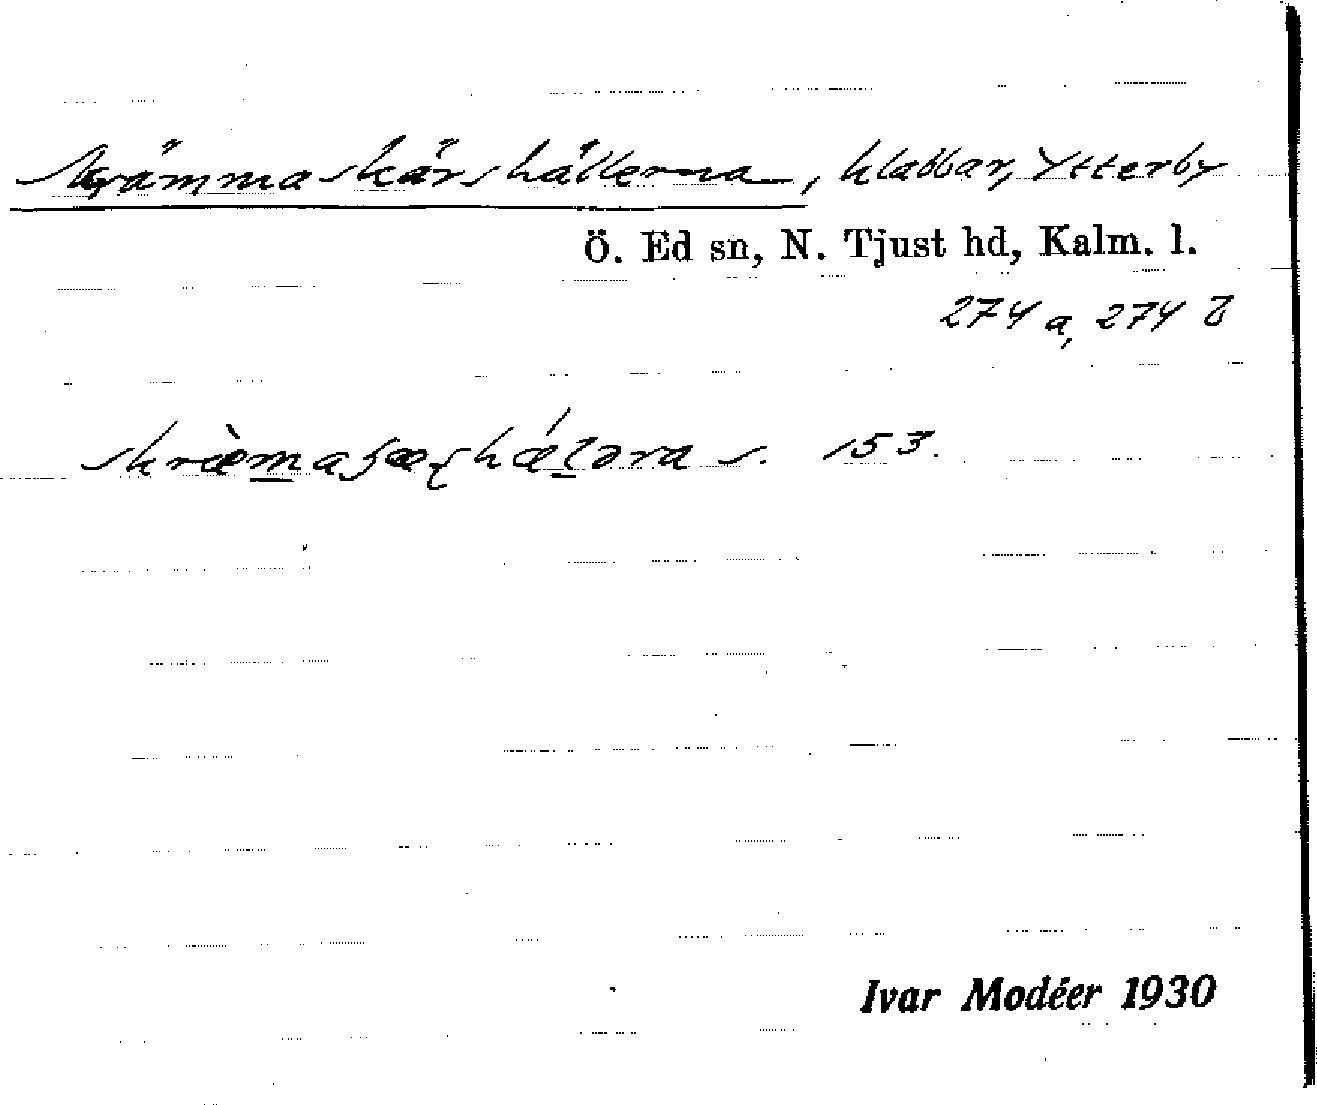 Skrämmaskärshällerna, klabbar, Ytterby
Ö. Ed sn, N. Tjust hd, Kalm. l.
274 a, 274 b
s. 153.
Ivar Modéer 1930